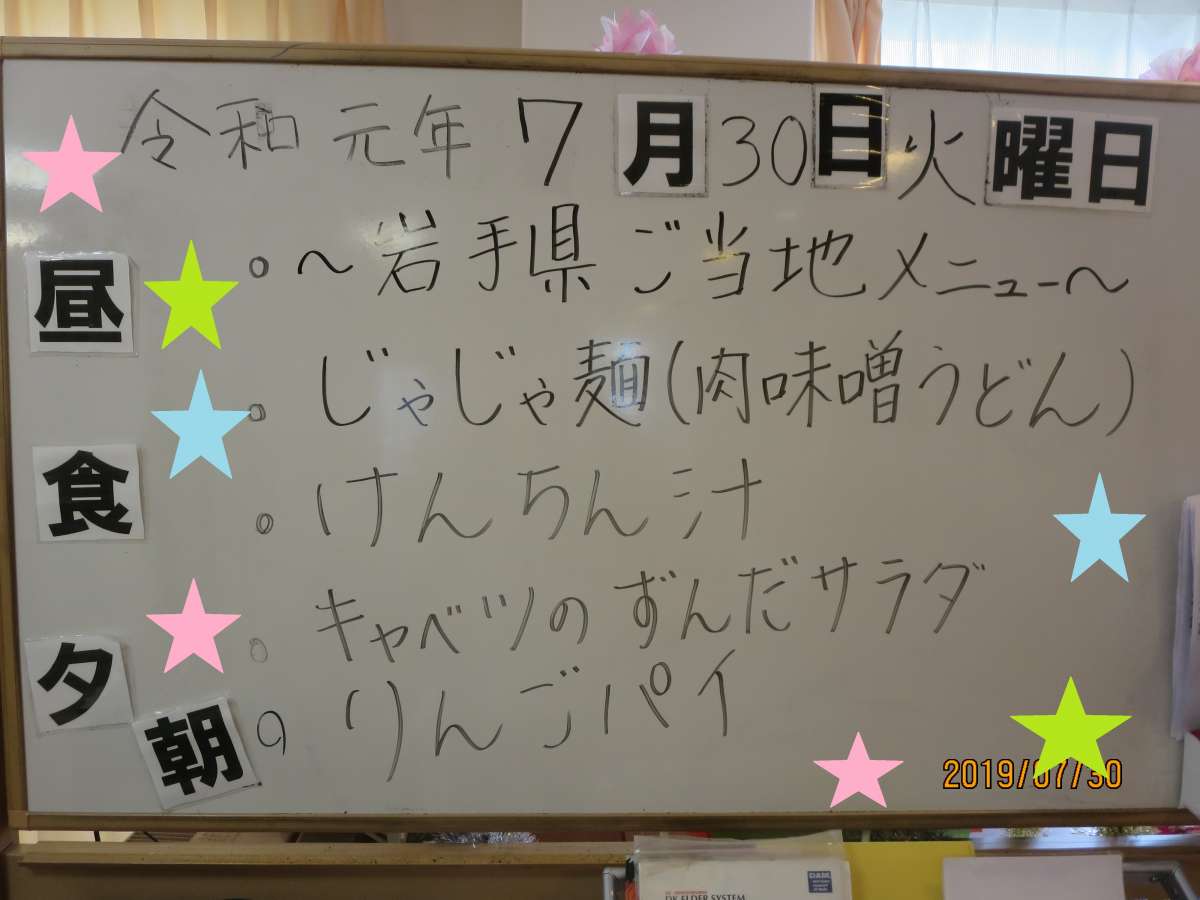 令和元年7月30日火曜日
昼
食
夕
朝
。～岩手県ご当地メニュー～
。じゃじゃ麺(肉味噌うどん)
。けんちん汁
。キャベツのずんだサラダ
。りんごパイ
2019/07/30
DAM
DK ELDER SYSTEM